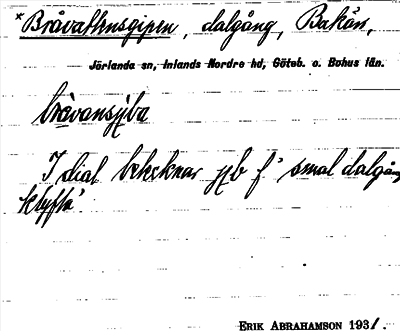 *Bråvattnsgipen, dalgång, Bakån,
Jörlanda sn, Inlands Nordre hd, Göteb. o. Bohus län.
bràvansjiba
I dial betecknar jib f' smal dalgång
klyfta'.
ERIK ABRAHAMSON 1931.